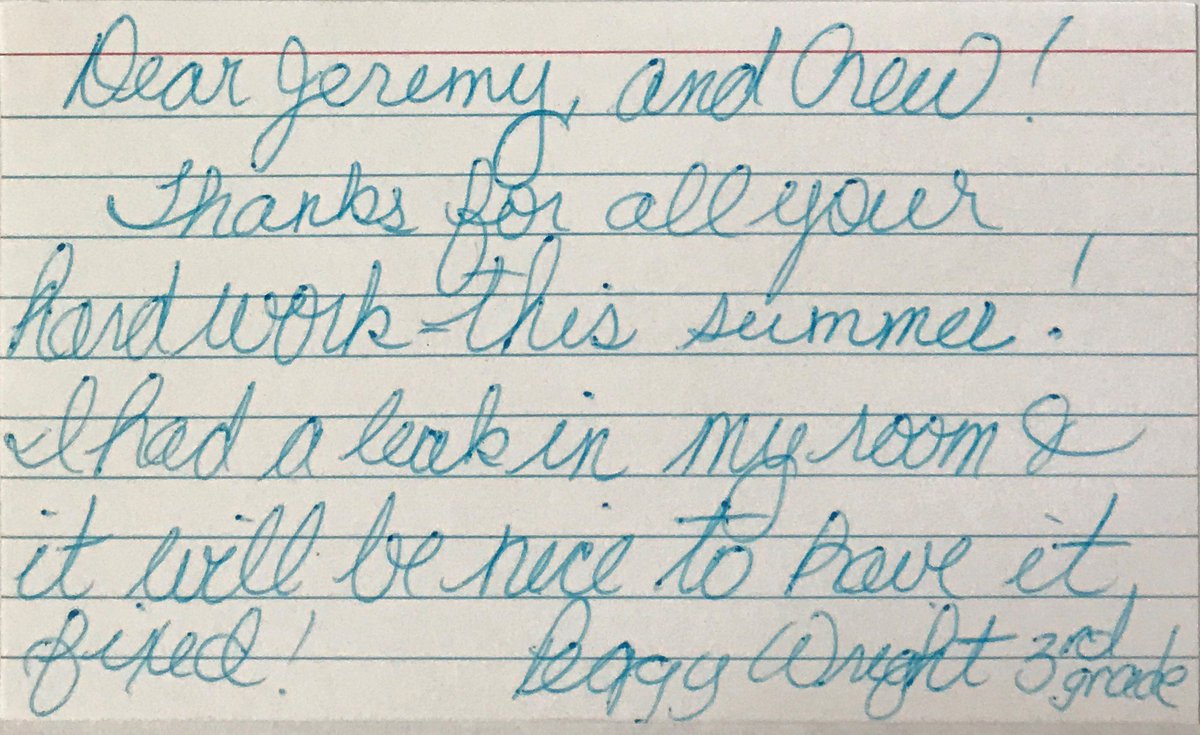 Dear Jeremy, and Crew!
Thanks for all your
hard work - this summer!
I had a leak in my room &
it will be nice to have it
fixed! Peggy Wright 3rd grade